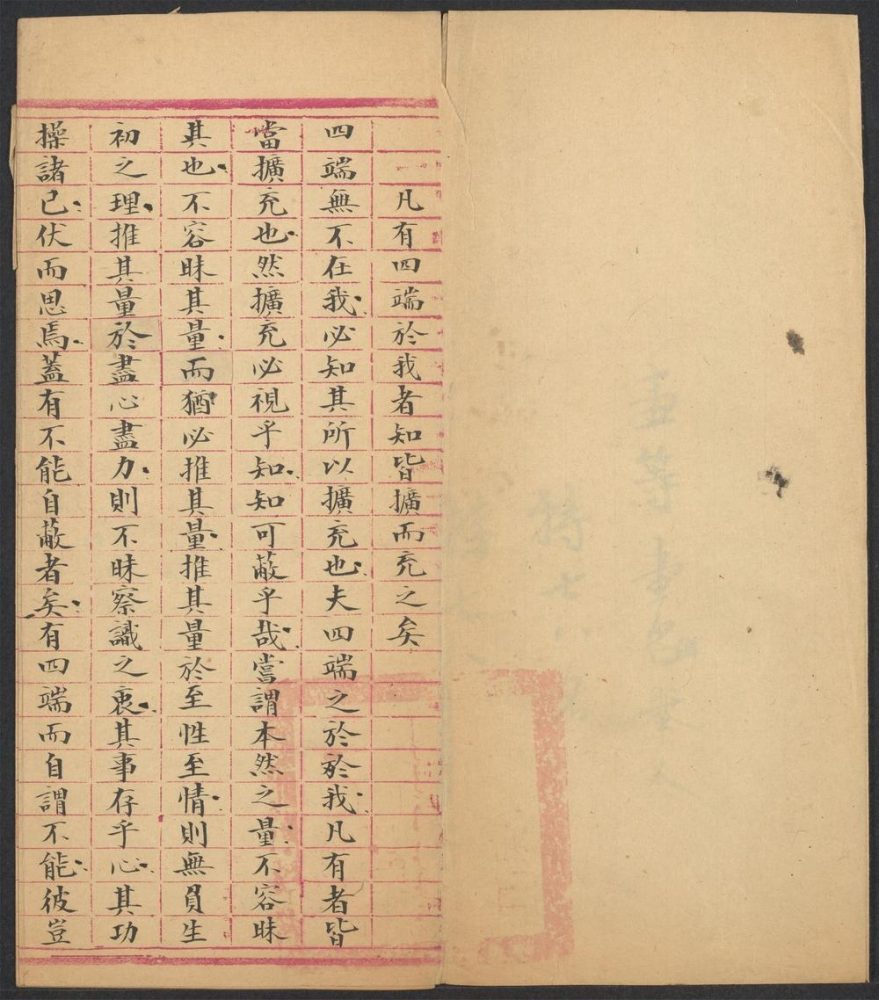 凡有四端於我者知皆擴而充之矣
四端無不在我必知其所以擴充也夫四端之於於我凡有者皆
當擴充也然擴充必視乎知知可蔽乎哉嘗謂本然之量不容昧
其也不容昧其量而猶必推其量推其量於至性至情則無負生
初之理推其量於盡心盡力則不昧察識之衷其事存乎心其功
操諸己伏而思焉蓋有不能自蔽者矣有四端而自謂不能彼豈